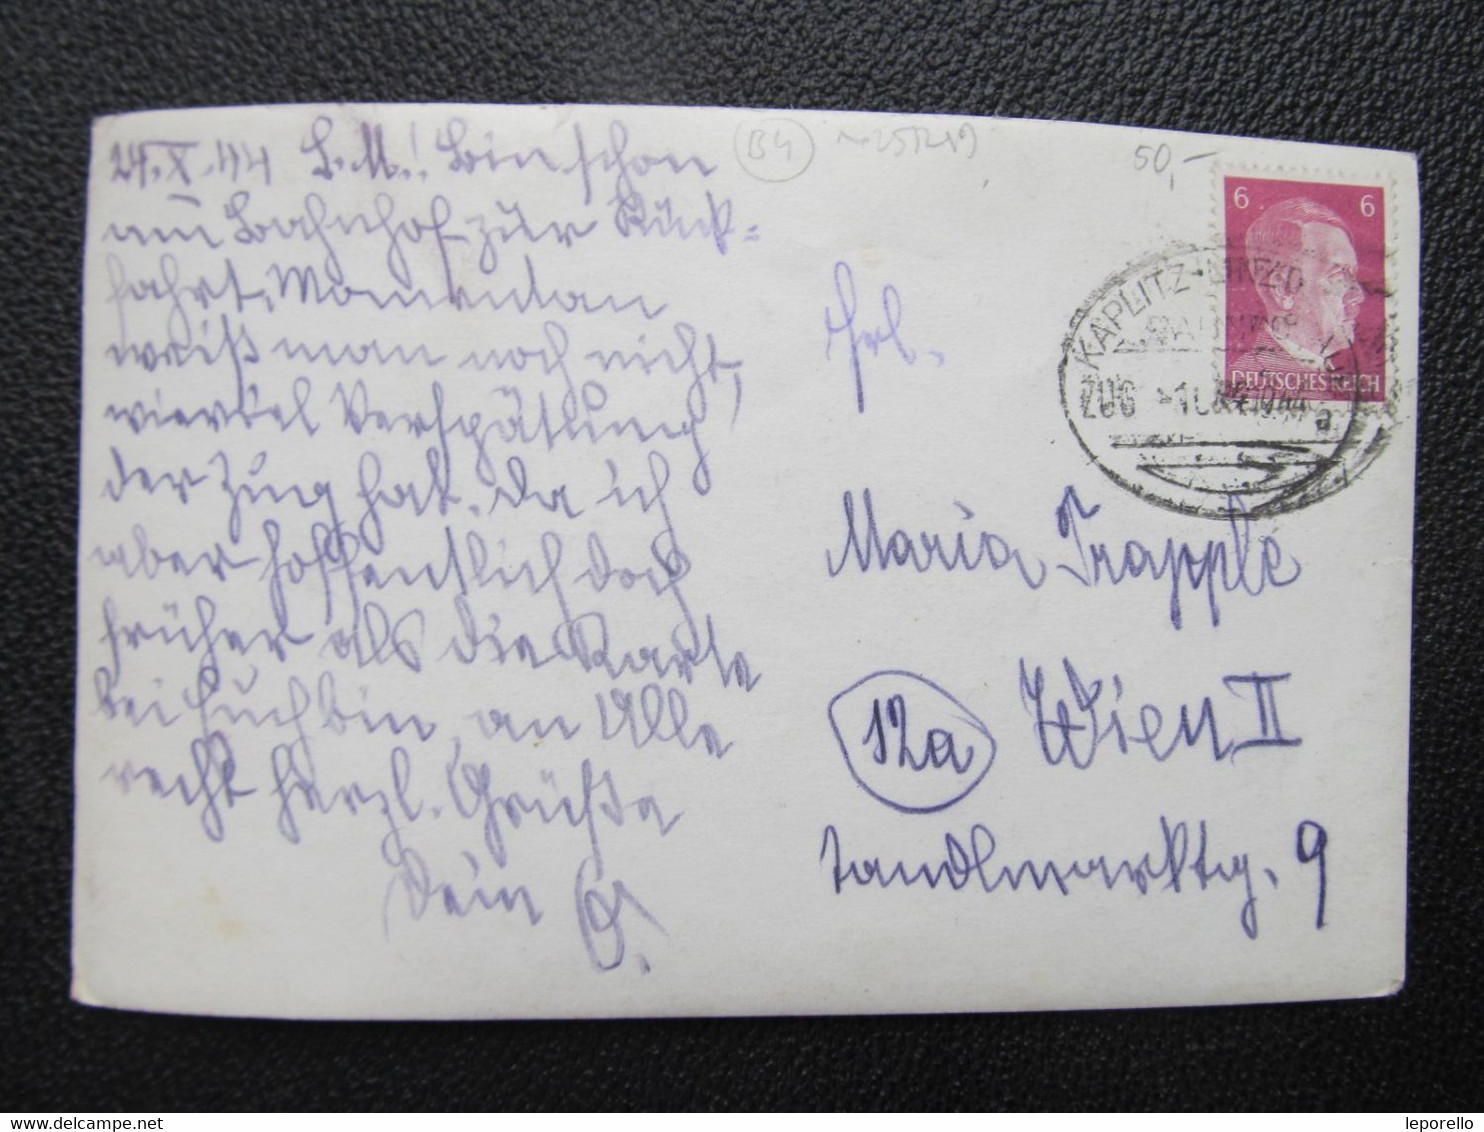 24.X.44 L.M.! Bin schon
am Bahnhof zur Rück=
fahrt. Momentan
weiß man noch nicht,
wieviel Verspätung
der Zug hat. Da ich
aber hoffentlich doch
früher als die Karte
bei Euch bin, an Alle
recht herzl. Grüße
Dein G.
B4
50,-
6 6
DEUTSCHES REICH
KAPLITZ
ZUG
Frl.
Maria Trapple
12a Wien II
Tandlmarktg. 9
leporello